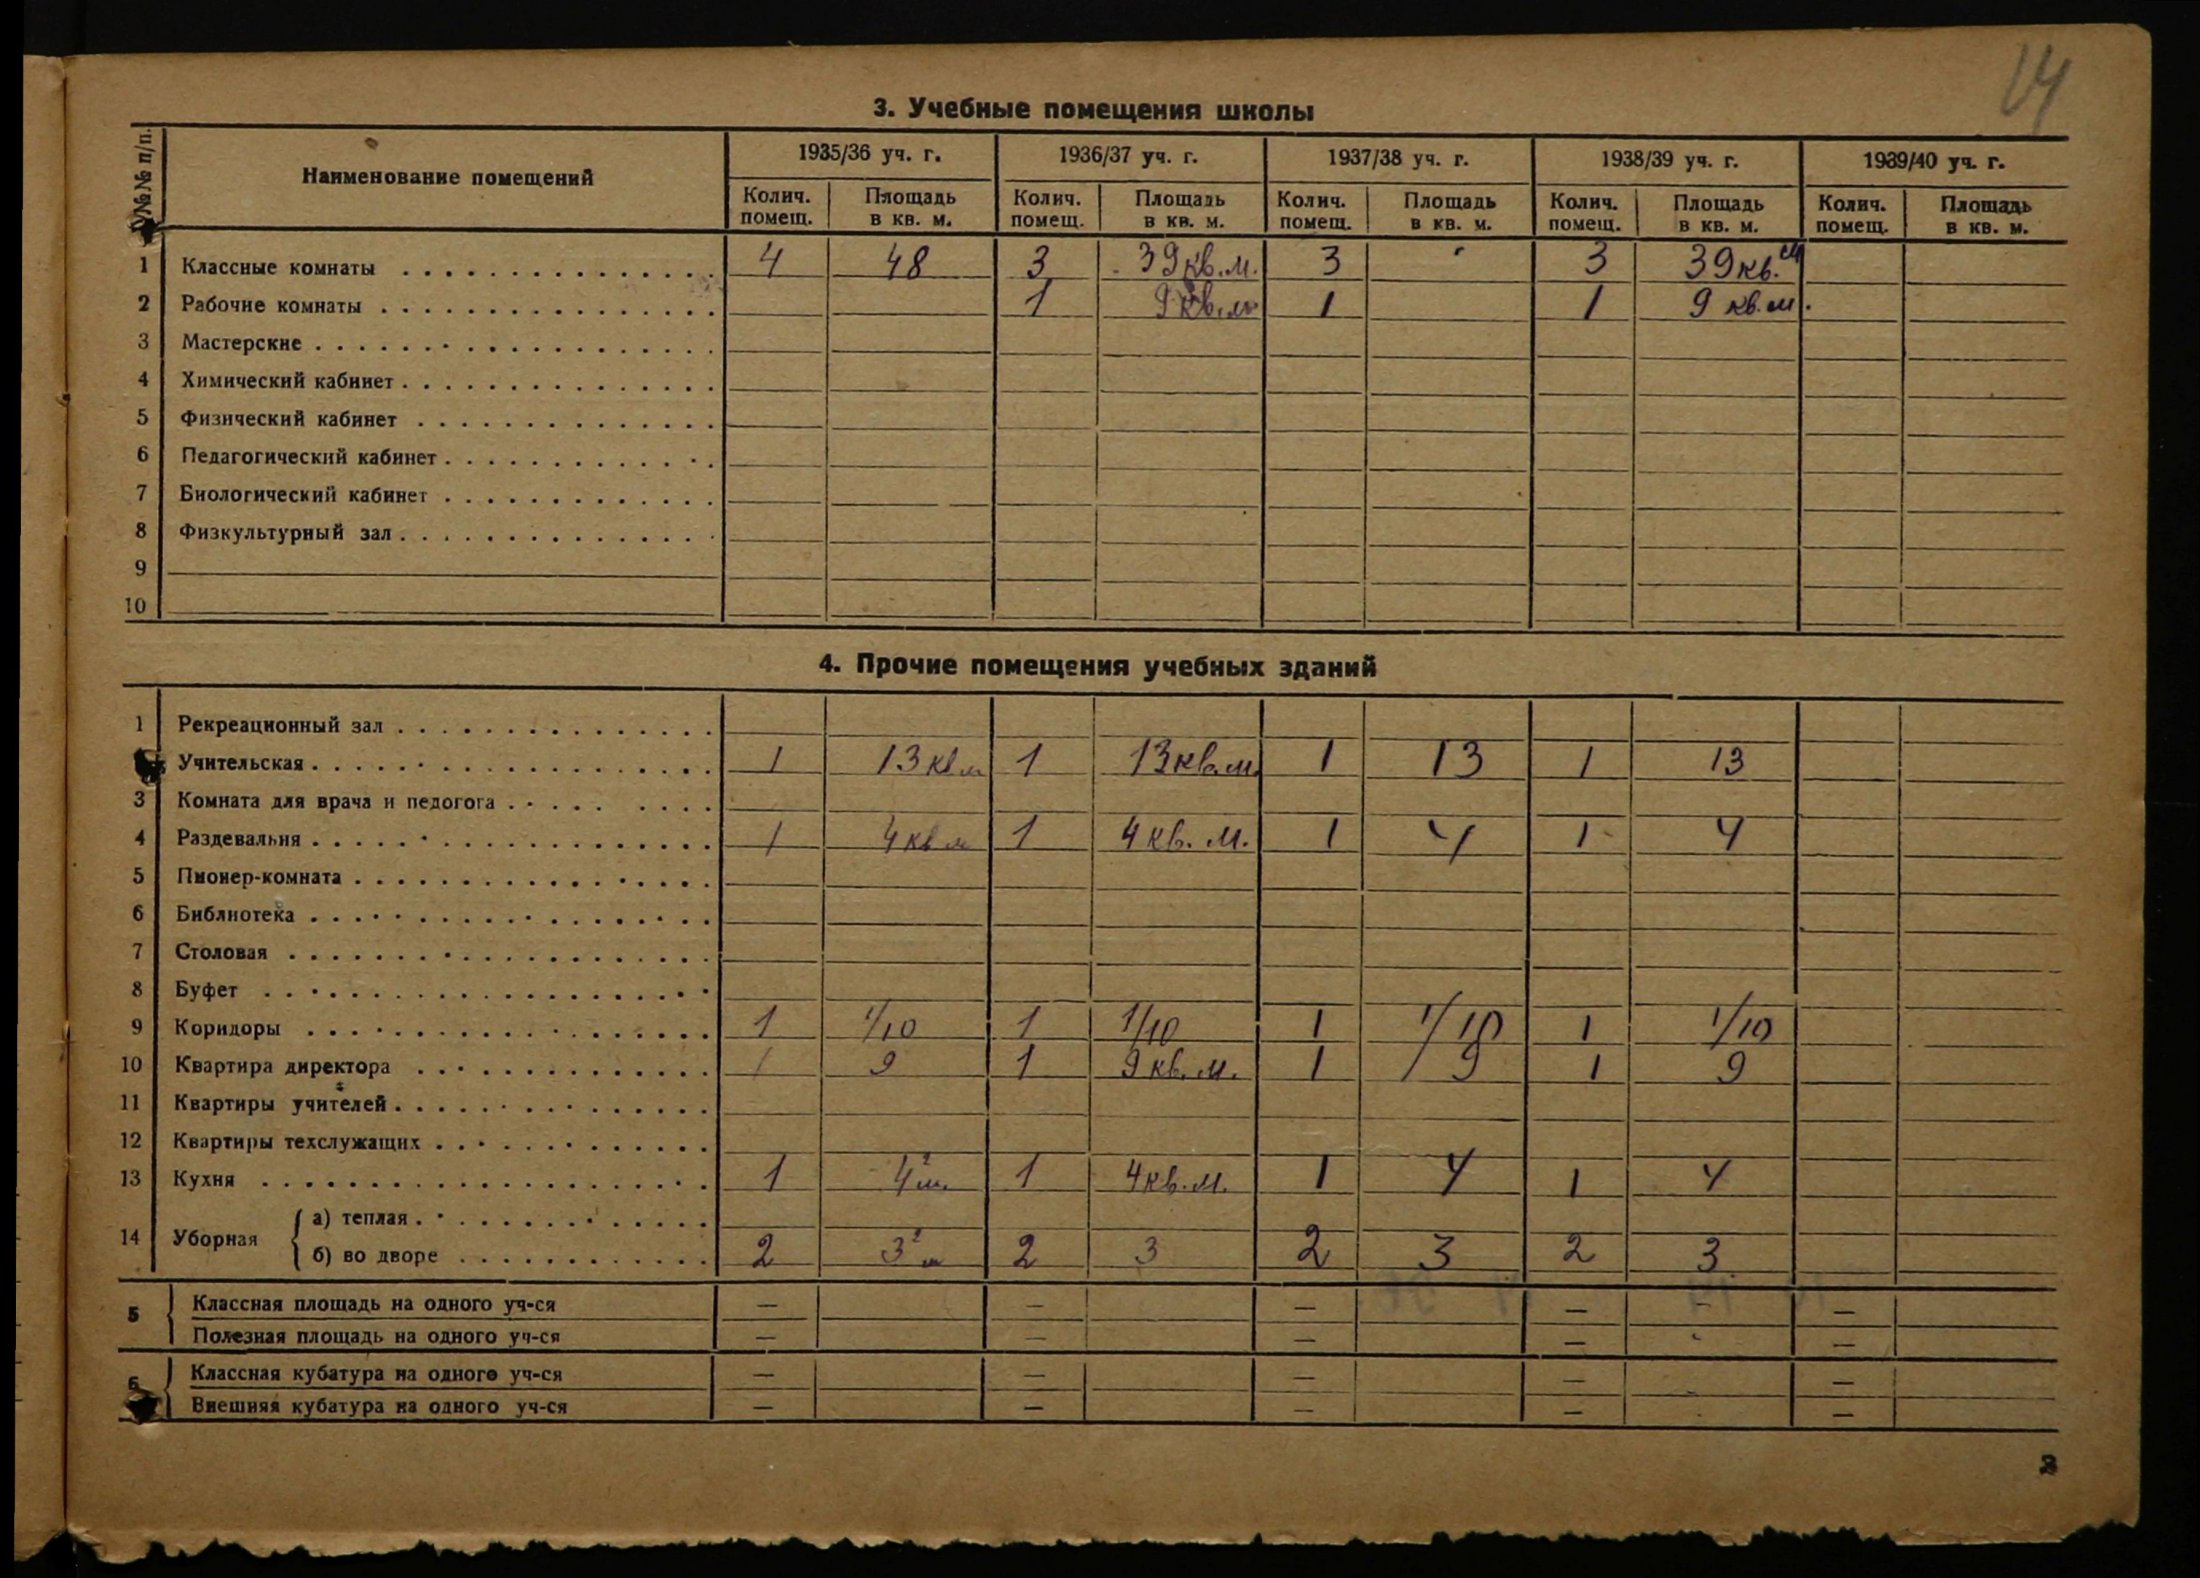 14
3. Учебные помещения школы
№№ п/п. Наименование помещений 1935/36 уч. г. 1936/37 уч. г. 1937/38 уч. г. 1938/39 уч. г. 1939/40 уч. г.
Колич. помещ. Площадь в кв. м. Колич. помещ. Площадь в кв. м. Колич. помещ. Площадь в кв. м. Колич. помещ. Площадь в кв. м. Колич. помещ. Площадь в кв. м.
1 Классные комнаты 4 48 3 39 кв. м. 3 3 39 кв. м
2 Рабочие комнаты 1 9 кв. м 1 1 9 кв. м.
3 Мастерские
4 Химический кабинет
5 Физический кабинет
6 Педагогический кабинет
7 Биологический кабинет
8 Физкультурный зал
9
10
4. Прочие помещения учебных зданий
1 Рекреационный зал
Учительская 1 13 кв м 1 13 кв. м. 1 13 1 13
3 Комната для врача и педогога
4 Раздевальня 1 4 кв м 1 4 кв. м. 1 4 1 4
5 Пионер-комната
6 Библиотека
7 Столовая
8 Буфет
9 Коридоры 1 1/10 1 1/10 1 1/10 1 1/10
10 Квартира директора 1 9 1 9 кв. м. 1 9 1 9
11 Квартиры учителей
12 Квартиры техслужащих
13 Кухня 1 4² м. 1 4 кв. м. 1 4 1 4
14 Уборная а) теплая
б) во дворе 2 3² м 2 3 2 3 2 3
5 Классная площадь на одного уч-ся — — — — —
Полезная площадь на одного уч-ся — — — — —
6 Классная кубатура на одного уч-ся — — — — —
Внешняя кубатура на одного уч-ся — — — — —
3